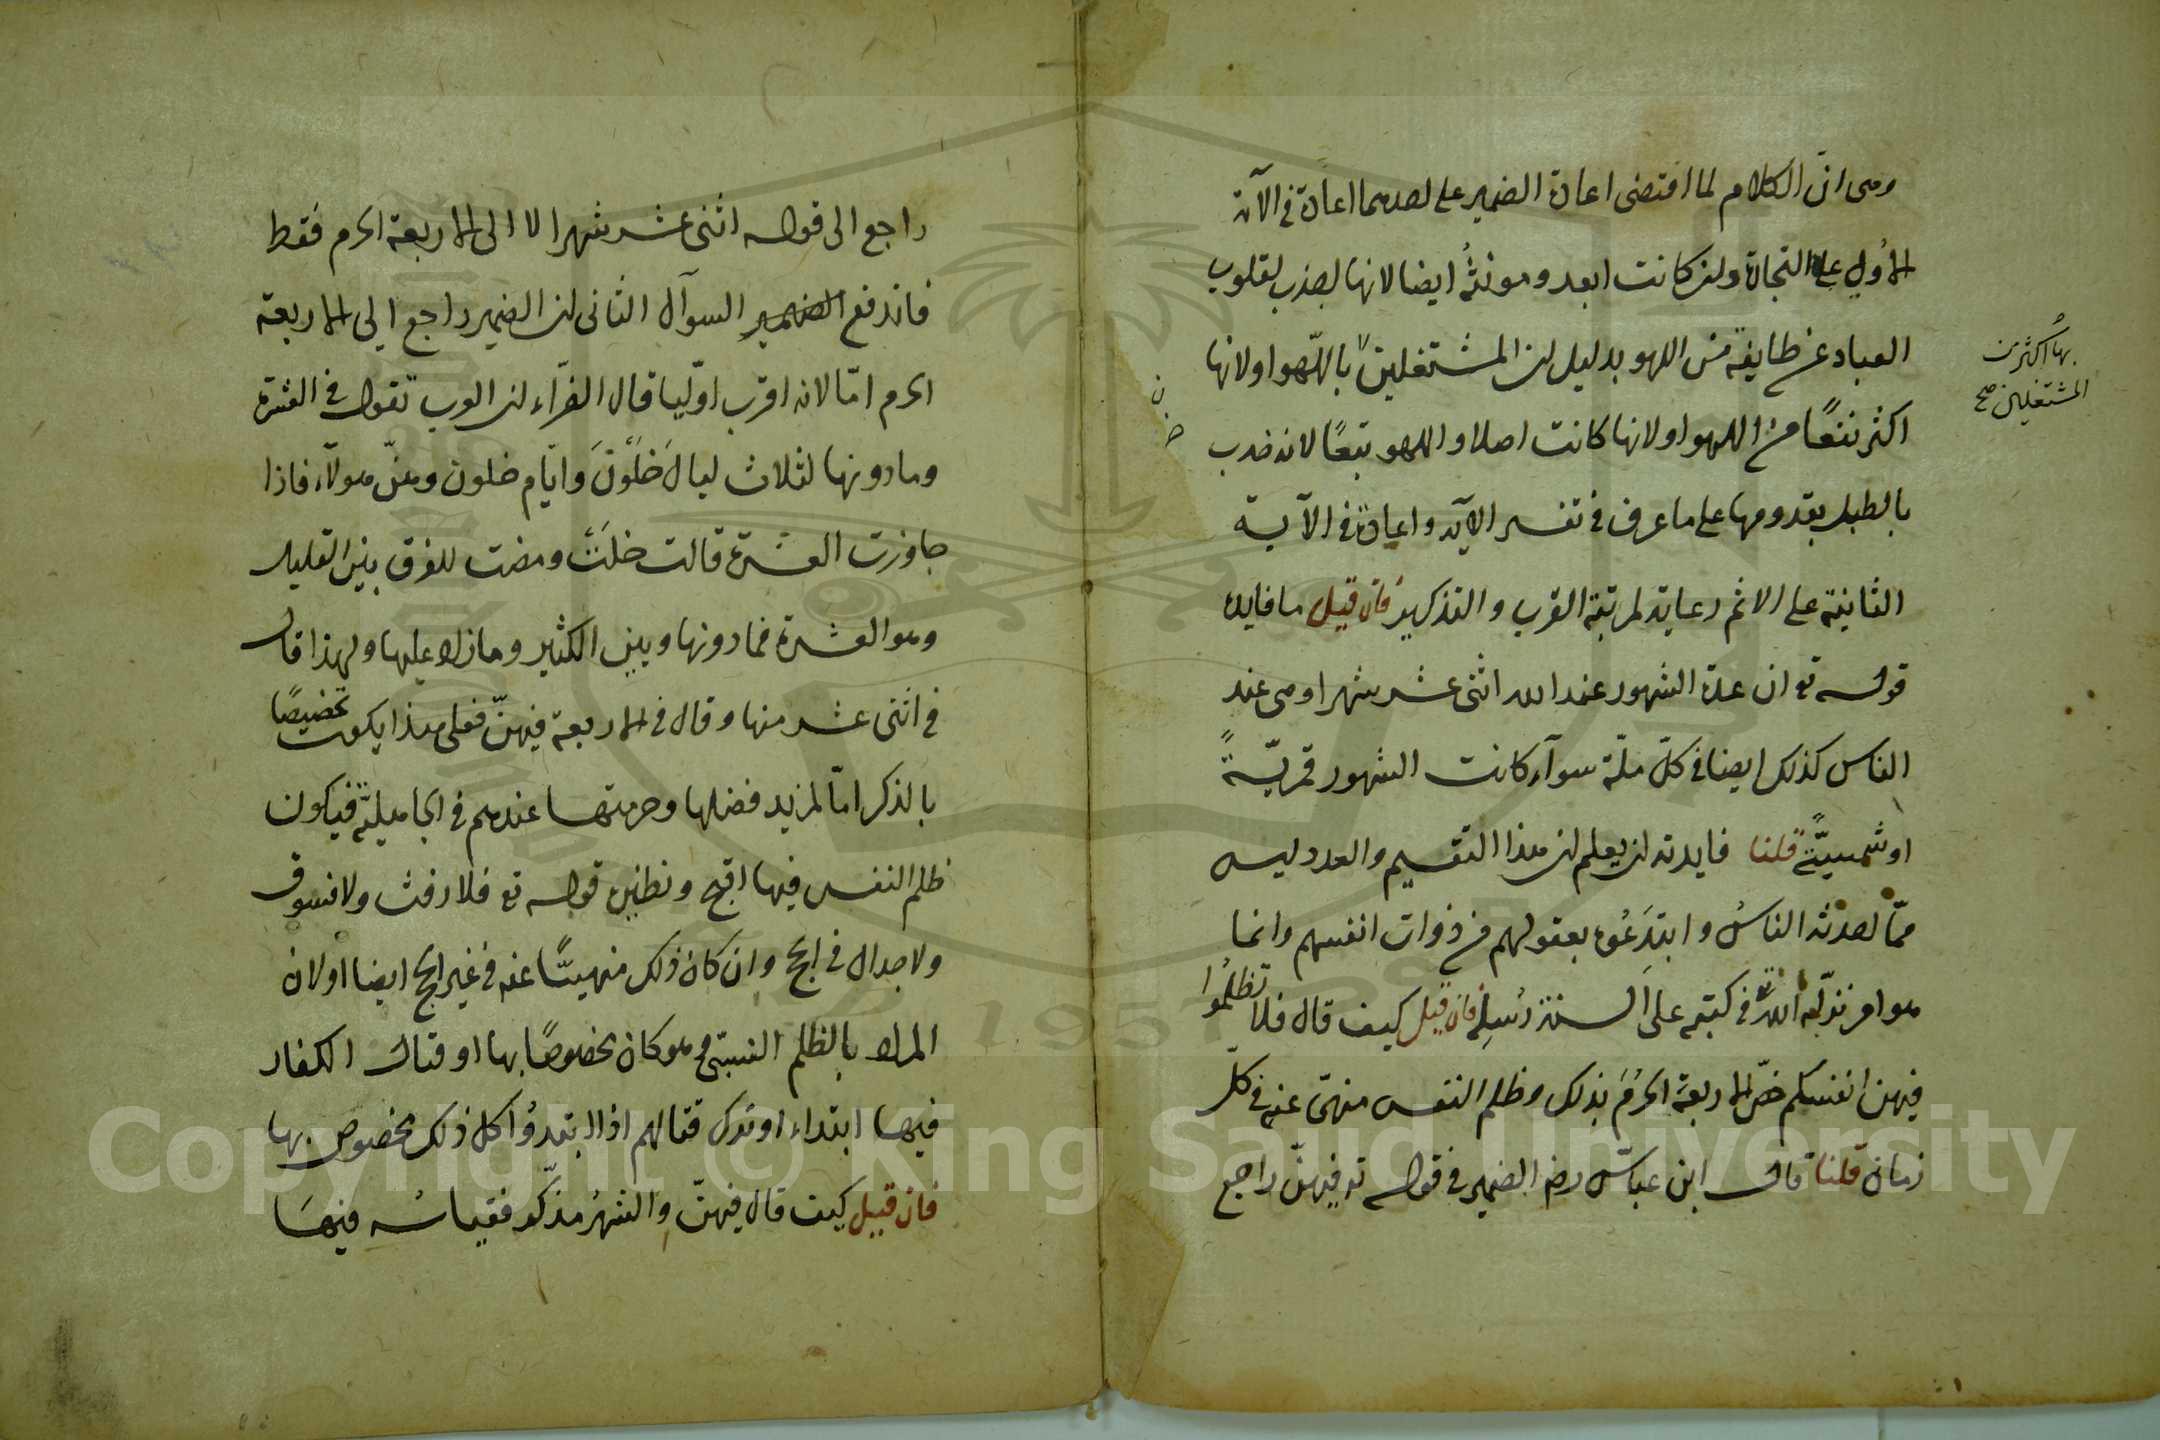 وهى ان الكلام لما اقتضى اعادة الضمير على احدهما اعاده فى الآية
الأولى على التجارة وان كانت ابعد ومونثة ايضا لانها اجذب لقلوب
العباد عن طايفة من اللهو بدليل ان المشتغلين باللهو اولانها
بها اكثر من
المشتغلين صح
اكثر نفعًا من اللهو اولانها كانت اصلا واللهو تبعًا لانه ضرب
بالطبل بقدومها على ما عرف فى تفسير الآية واعاده فى الآية
الثانية على الاثم رعاية لمرتبة القرب والتذكير فان قيل ما فايدة
قوله تع ان عدة الشهور عند الله اثنى عشر شهرا وهى عند
الناس كذلك ايضا فى كلّ ملّة سوآء كانت الشهور قمريّةً
او شمسيّةً قلنا فايدته ان يعلم ان هذا التقسيم والعدد ليس
ممّا احدثه الناسُ وابتدَعُوه بعقولهم من ذوات انفسهم وانما
هو امر نزّله اللّه فى كتبه على السنة رُسلِه فان قيل كيف قال فلا تظلموا
فيهن انفسكم خصّ الاربعة الحُرُمَ بذلك وظلم النفس منهىّ عنه فى كلّ
زمان قلنا قال ابن عباس رضى الضمير فى قوله تع فيهنّ راجع
راجع الى قوله اثنى عشر شهرا لا الى الاربعة الحرم فقط
فاندفع الضمير السوآل الثانى ان الضمير راجع الى الاربعة
الحرم امّا لانه اقرب او لما قال الفرّاء ان العرب تقول فى العشرة
وما دونها لثلاث ليال خَلَوْنَ وايّام خلون وهنّ وهؤلآء فاذا
جاوزت العشرة قالت خلَتْ ومضت للفرق بين القليل
وهو العشرة فما دونها وبين الكثير وما زاد عليها ولهذا قال
فى اثنى عشر منها وقال فى الاربعة فيهنّ فعلى هذا يكون تخصيصًا
بالذكر امّا لمزيد فضلها وحرمتها عندهم فى الجاهليّة فيكون
ظلم النفس فيها اقبح ونظيره قوله تع فلا رفث ولا فسوق
ولا جدال فى الحج وان كان ذلك منهيًّا عنه فى غير الحج ايضا او لان
المراد بالظلم النسىء وهو كان مخصوصًا بها او قتال الكفار
فيها ابتداء او ترك قتالهم اذا ابتدوُا كل ذلك مخصوص بها
فان قيل كيف قال فيهنّ والشهرُ مذكّر فقياسُه فيها